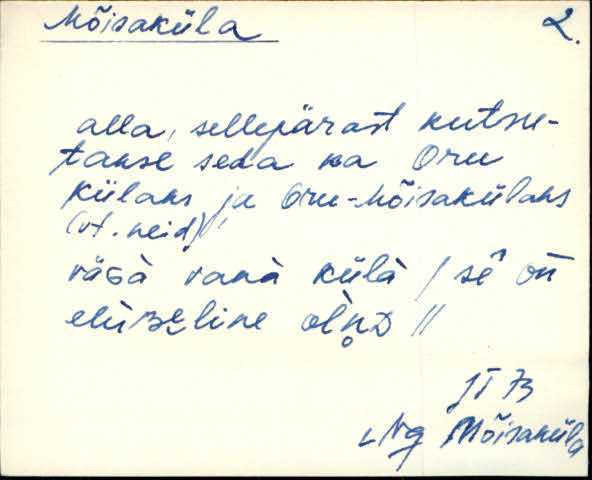 Mõisaküla 2.
alla, sellepärast kutsu-
takse seda ka Oru
külaks ja Oru-Mõisakülaks
(vt. neid).
vana külà / sê on
olǹD //
JT 73
Mõisaküla